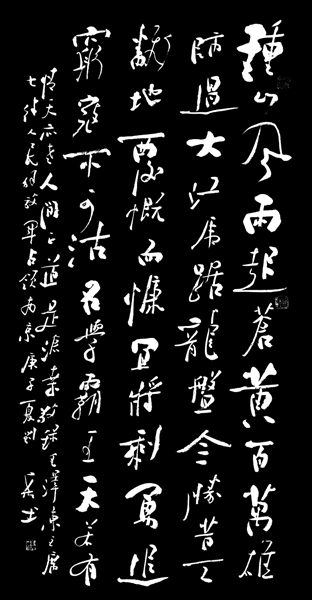 鍾山风雨起蒼黄百萬雄
師過大江虎踞龍盤今勝昔天
翻地覆慨而慷宜將剩勇追
窮寇不可沽名學霸王天若有
情天亦老人間正道是滄桑敬録毛澤東主席
七律人民解放軍占領南京庚子夏